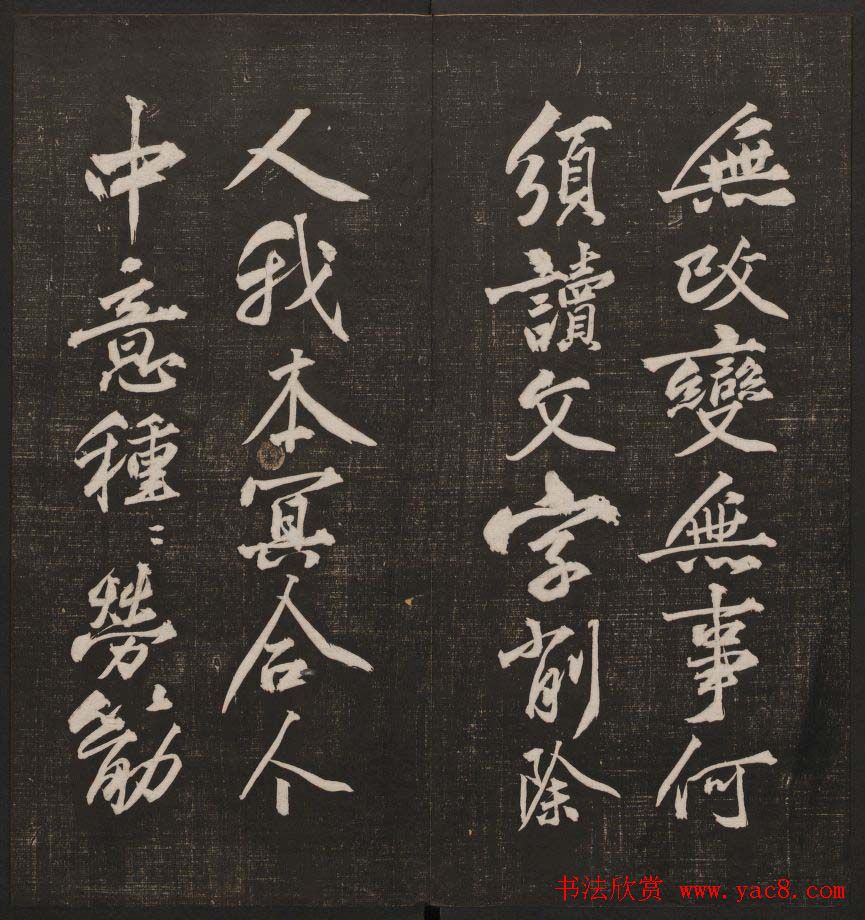 無改變無事何
須讀文字削除
人我本冥合个
中意種〻勞筋
书法欣赏 www.yac8.com